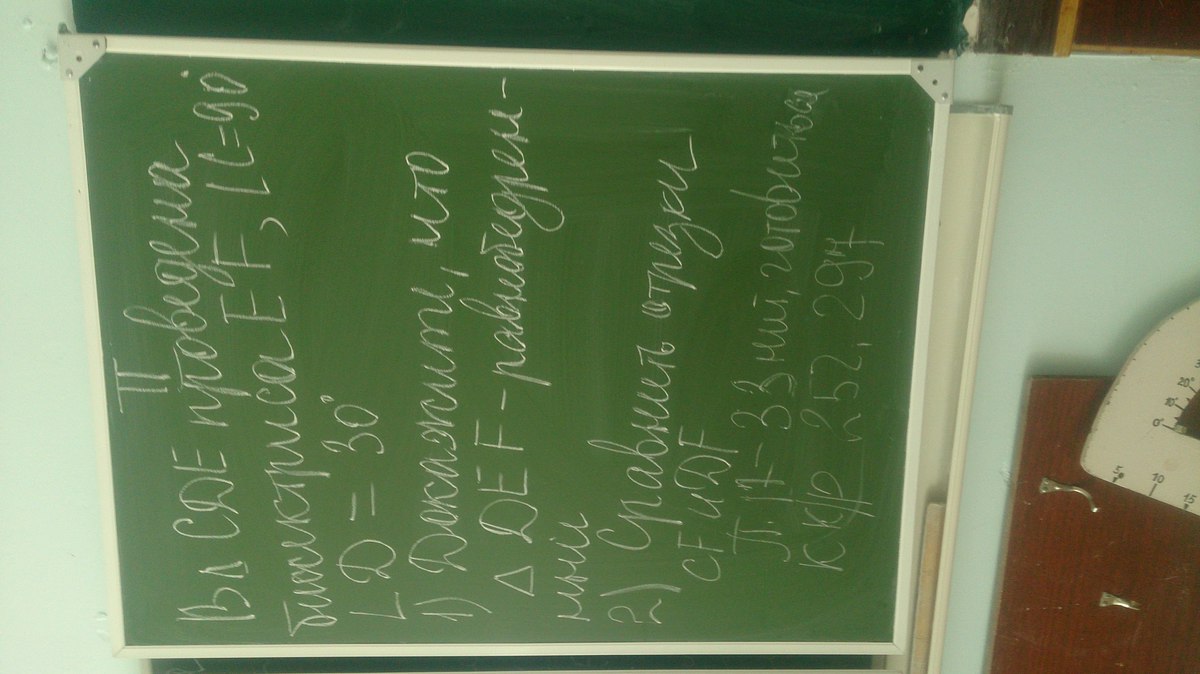 II
В △ CDE проведена
биссектриса EF, ∠C=90°
∠D = 30°
1) Докажите, что
△ DEF - равнобедрен-
ный
2) Сравнить отрезки
CF и DF
П. 17-33 готовиться
к кр 252, 297
0°
10°
20°
5
10
15